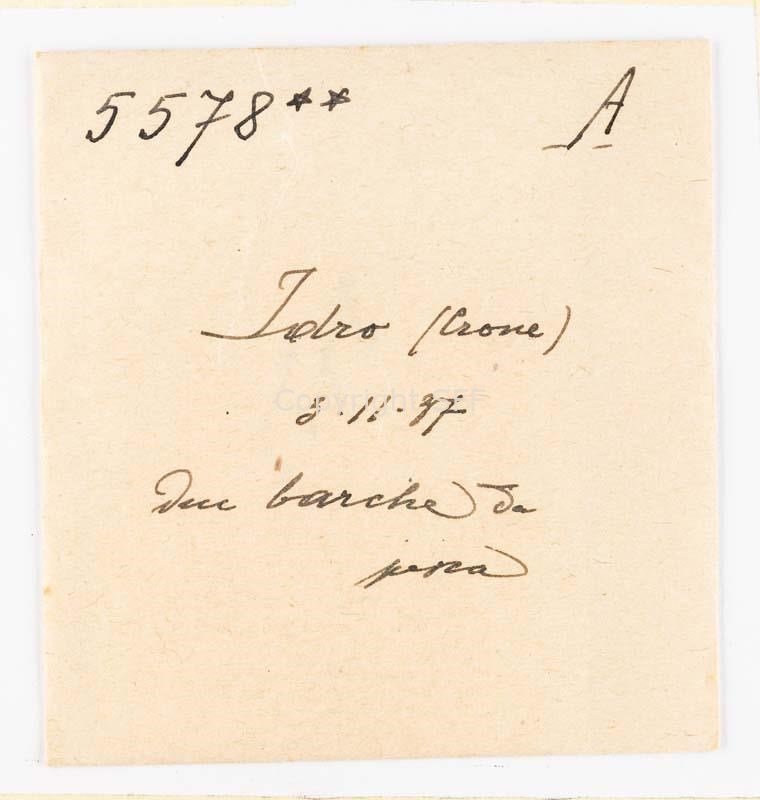 5578** A
Idro (Crone)
8·11·37
Due barche da
pesca
Copyright GEF